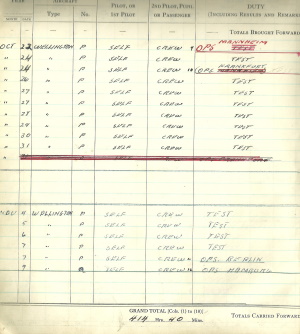 YEAR AIRCRAFT PILOT, OR 2ND PILOT, PUPIL DUTY
Type No. 1ST PILOT OR PASSENGER (INCLUDING RESULTS AND REMARKS
— — — — TOTALS BROUGHT FORWARD
OCT 22 WELLINGTON P SELF CREW OPS MANNHEIM
" 24 " P SELF CREW TEST
" P SELF CREW OPS FRANKFURT
" " P SELF CREW TEST
" 27 " P SELF CREW TEST
" 28 " P SELF CREW TEST
" " P SELF CREW TEST
" 30 " P SELF CREW TEST
" 31 " P SELF CREW TEST
NOV 4 WELLINGTON P SELF CREW TEST
" 5 " P SELF CREW TEST
" 6 " P SELF CREW TEST
" 7 " P SELF CREW TEST
" 7 " P SELF CREW OPS. BERLIN
" 9 " SELF CREW OPS HAMBURG
GRAND TOTAL [Cols. (1) to (10)]
414 Hrs. 40 Mins. TOTALS CARRIED FORWARD